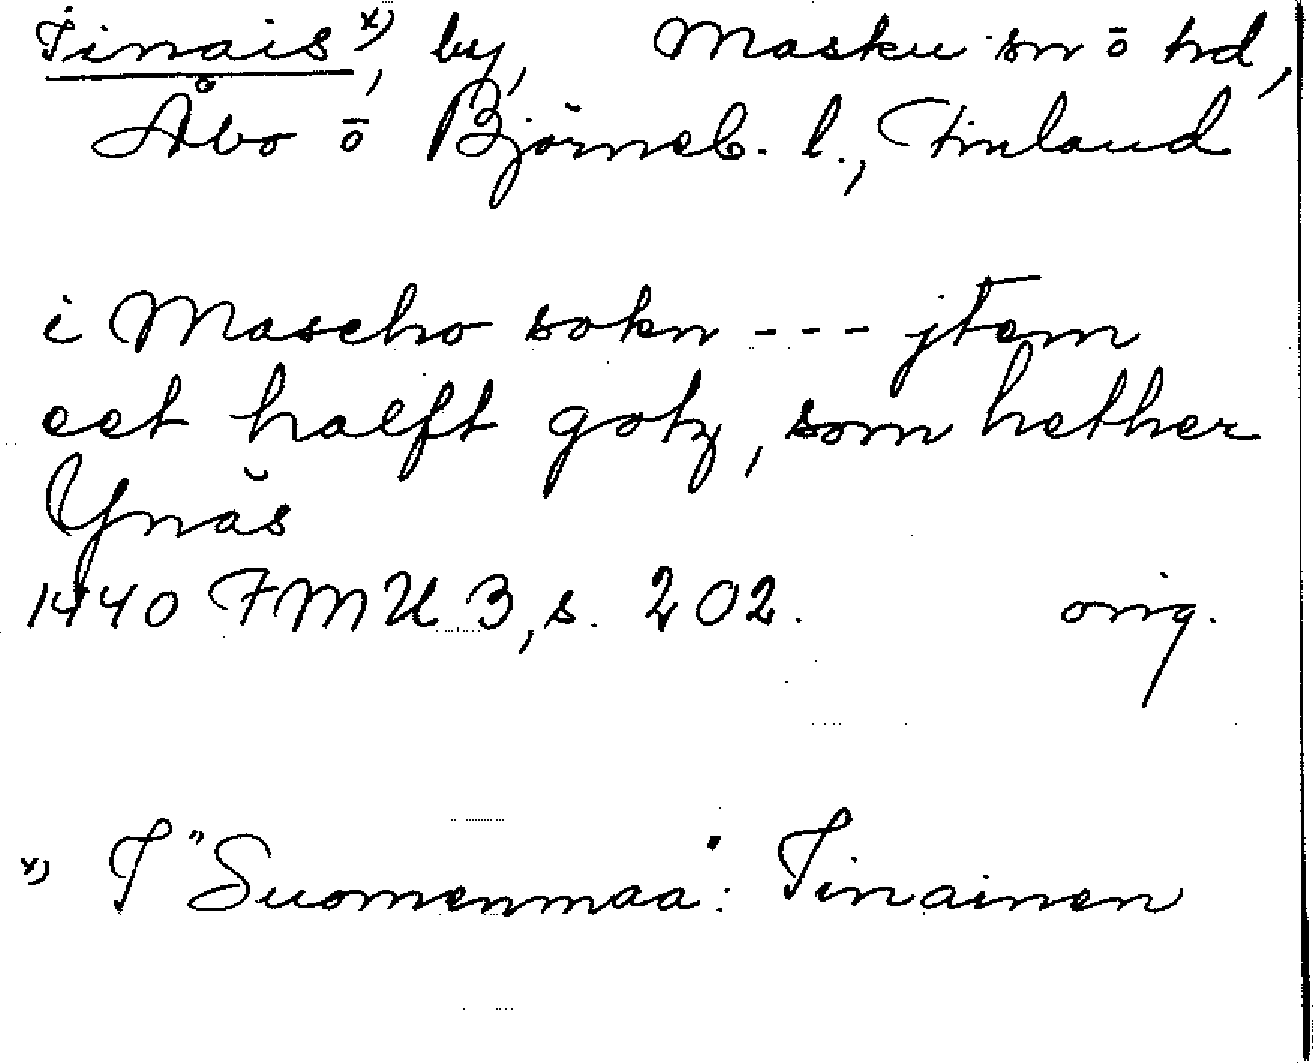 Iinais x), by, Masku sn o hd,
Åbo o Björneb. l., Finland
i Mascho sokn --- jtem
eet halfft gotz, som hether
Ynäs
1440 FMU 3, s. 202. orig.
x) I "Suomenmaa": Iinainen